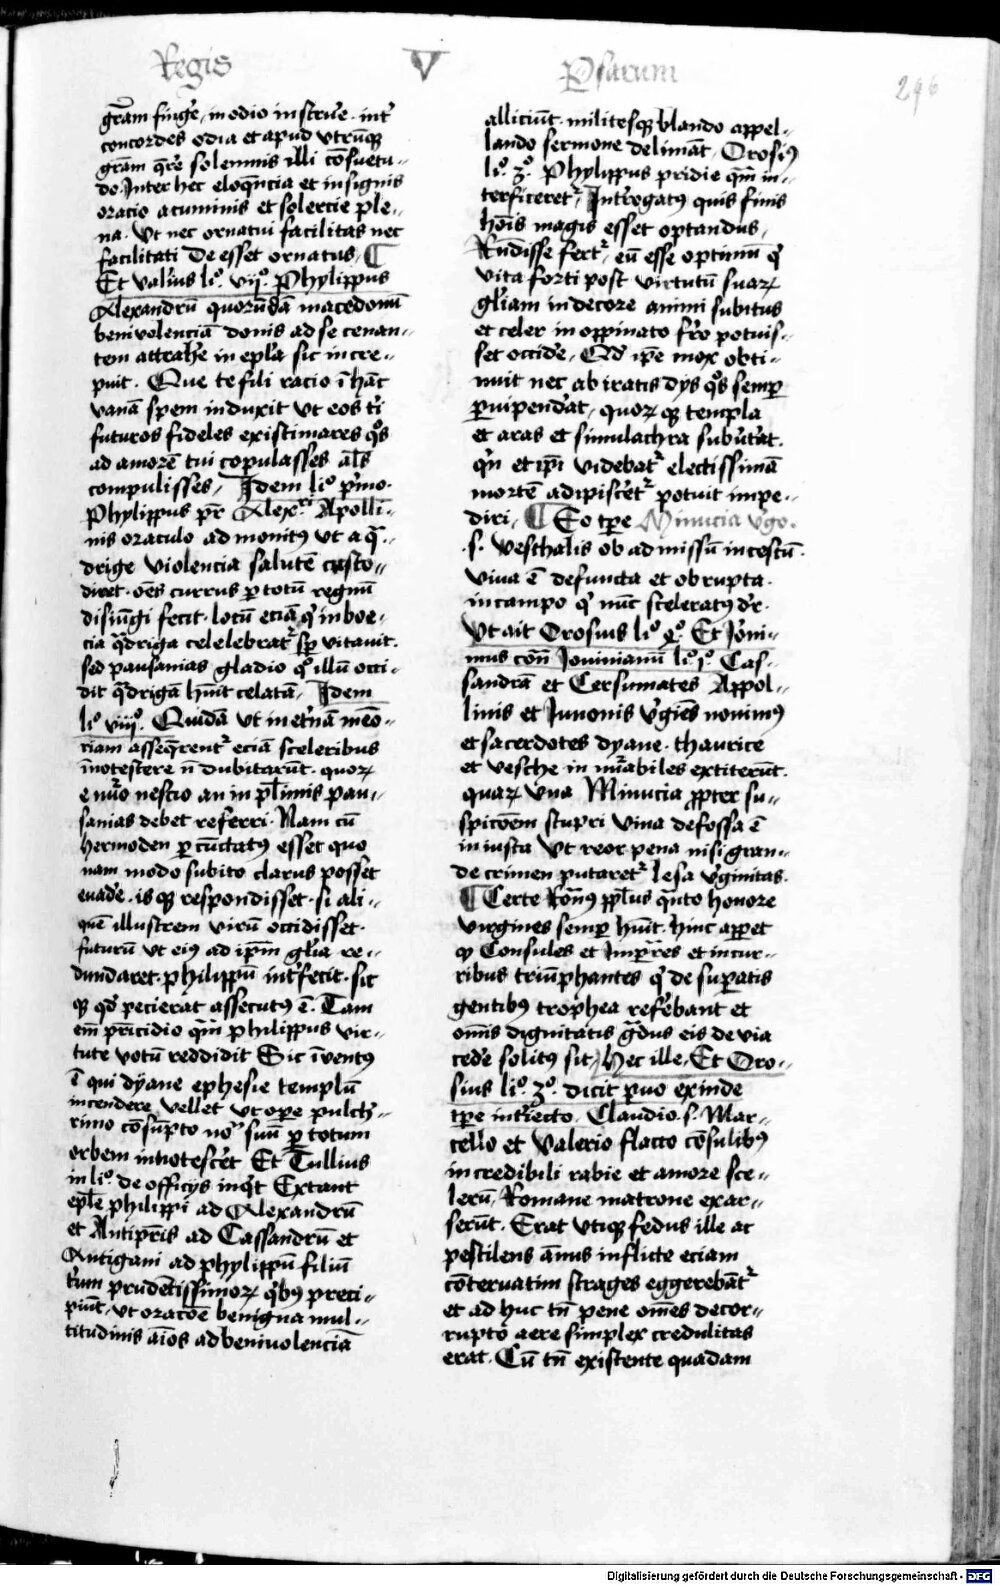 Regis V Psarum
296
grām fingere, in odio instrue. int̄
concordes odia et apud utrūq̄
grām q̄rere solemnis illi cōsuetu-
do. Inter hec eloq̄ncia et insignis
oracio acuminis et solercie ple-
na. Ut nec ornatui facilitas nec
facilitati deesset ornatus. ¶
Et valerius li°. vij°. Phylippus
Alexandrū quorūdā macedonū
benivolenciā donis ad se cenan-
tem attrahere in epl'a sic incre-
puit. Que te fili racio ī hāc
vanā spem induxit ut eos t'i
futuros fideles existimares q°s
ad amorē tui copulasses āls
compulisses, Idem li° p'mo.
Phylippus pr̄ Alex. Apolli-
nis oraculo admonitus ut a q̄-
drige violencia salutē custo-
diret. oēs currus p totū regnū
disiūgi fecit. locū eciā q' in boe-
cia q̄driga celelebrat' sp̄ vitavit.
sed pausanias gladio q° illū occi-
dit q̄drigā hūit celatā, Idem
li° viij°. Quidā ut in et'nā mēo-
riam asseq̄rent' eciā sceleribus
ī̄notescere n̄ dubitarūt. quoꝝ
e nūo nescio an in pl'imis pau-
sanias debet referri. Nam cū
hermoden p cūctatus esset quo
nam modo subito clarus posset
evade. is q̄ respondisset. si ali-
quē illustrem virū occidisset.
futurū ut eius ad ip̄m gl'ia re-
dundaret. philippū int'fecit. sic
q̄ qd' pecierat assecutus ē. Tam
em̄ pricidio q̄m philippus vir-
tute votū reddidit Sic īventus
ē qui dyane ephesie templū
incendere vellet ut ope pulch-
rimo cōsūpto nō suū p totum
orbem innotesceret Et Tullius
in li°. de officijs inq't Extant
epl'e philippi ad Alexandrū
et Antipr̄is ad Cassandrū et
Antigani ad phylippū filiū
t'ium prudētissimoꝝ q'bus preci-
piūt, ut oracōe benigna mul-
titudinis aīos ad benivolenciā
alliciūt. militesq̄ blando appel-
lando sermone deliniāt, Orosius
li°. 3°. Phylippus pridie q̄m in-
terficeret', Introgatus quis finis
hōis magis esset optandus,
Rn̄disse fert', eū esse optimū q'
vita forti post virtutū suaꝝ
gl'iam in decore animi subitus
et celer in oppinato fr̄o potuis-
set occide, Qd' ip̄e mox obti-
nuit nec ab iratis dijs q°s semp
p̄uipenderat, quoꝝ q̄ templa
et aras et simulachra subv'terat.
q'n et ip̄i videbat' electissimā
mortē adipiscēt' potuit impe-
diri, ¶ Eo tp̄e Minucia v'go.
.s. vesthalis ob admissū incestū.
viva ē defuncta et obrupta.
in campo q' nūc sceleratus dr̄.
Ut ait Orosius li° q°. Et Ieroni-
mus con̄ Iovinianū li°. j°. Cas-
sandrā et Cersumates Appol-
linis et Iunonis v'gies novimus
et sacerdotes dyane. thaurice
et vesthe in nūabiles extiterūt.
quaꝝ una Minucia p̄pter su-
spicōem stupri viva defossa ē
in iusta ut reor pena nisi gran-
de crimen putaret' lesa v'ginitas.
¶ Certe Rom̄us pp̄lus q̄nto honore
virgines semper hūit. hinc apparet
q̄ Consules et Imp̄ares et in cur-
ribus triūphantes q' de superatis
gentibus trophea referebant et
omnis dignitatis g̊dus eis de via
cedere solitus sit, Hec ille. Et Oro-
sius li°. 3°. dicit p̄vo exinde
tp̄e int'iecto. Claudio .s. Mar-
cello et Valerio flacco cōsulibus
incredibili rabie et amore sce-
lerū, Romane matrone exar-
serūt. Erat utiq̄ fedus ille ac
pestilens annus inflicte eciam
cōtervatim strages eggerebāt'
et ad huc tn̄ pene omēs decor-
rupto aere simplex credulitas
erat. Cū tn̄ existente quadam
Digitalisierung gefördert durch die Deutsche Forschungsgemeinschaft - DFG